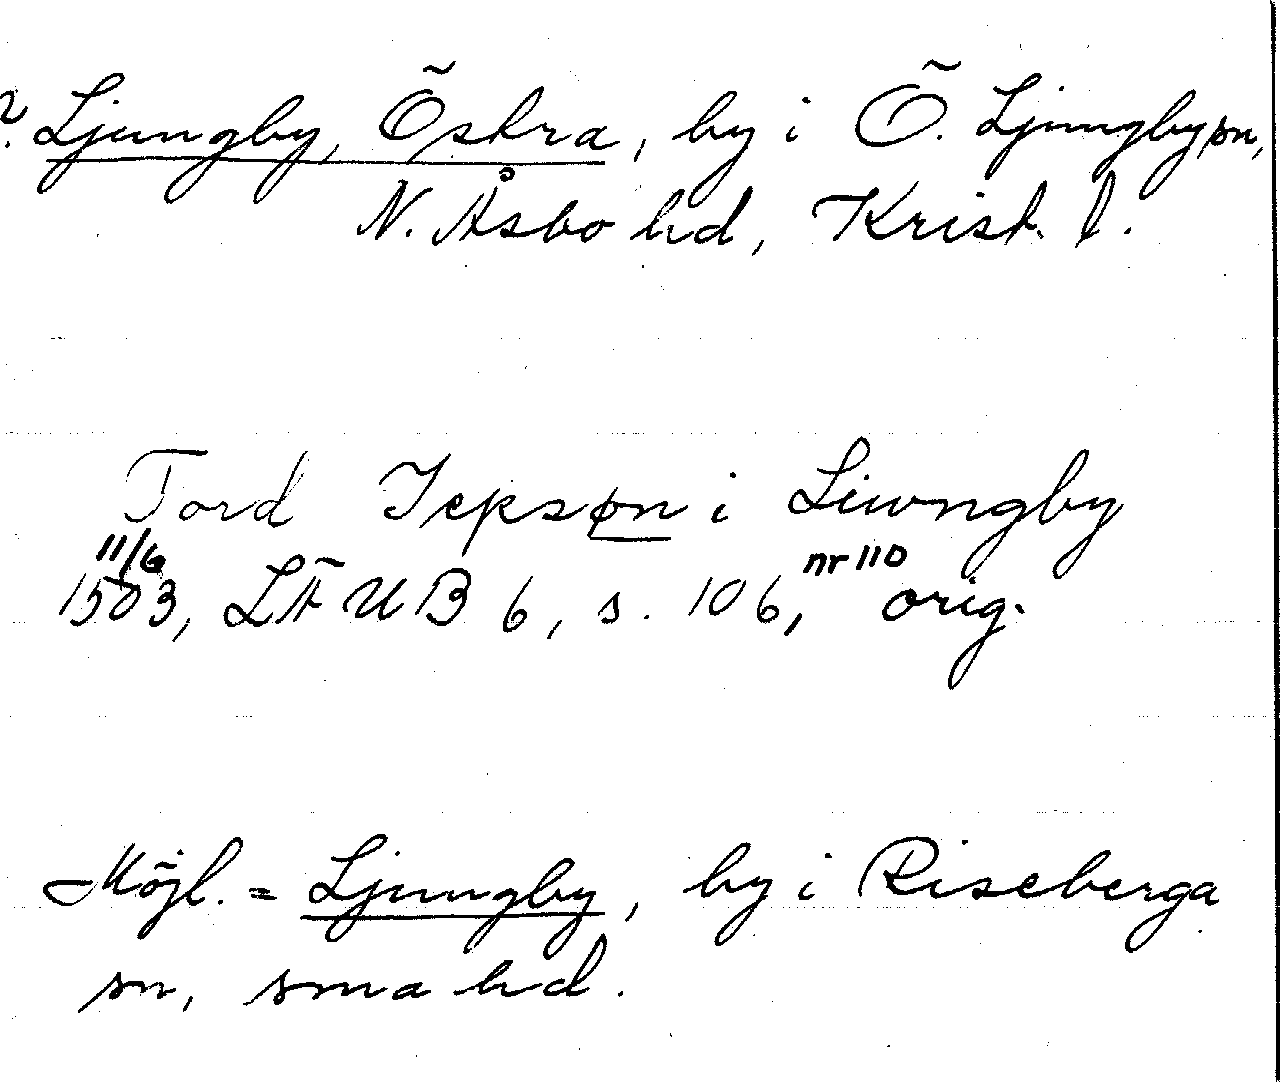 Ljungby, Östra, by i Ö. Ljungby sn,
N. Åsbo hd, Krist. l.
Tord Jepsøn i Liwngby
11/6 nr 110
1503, LÄUB 6, s. 106, orig.
Möjl. = Ljungby, by i Riseberga
sn, sma hd.